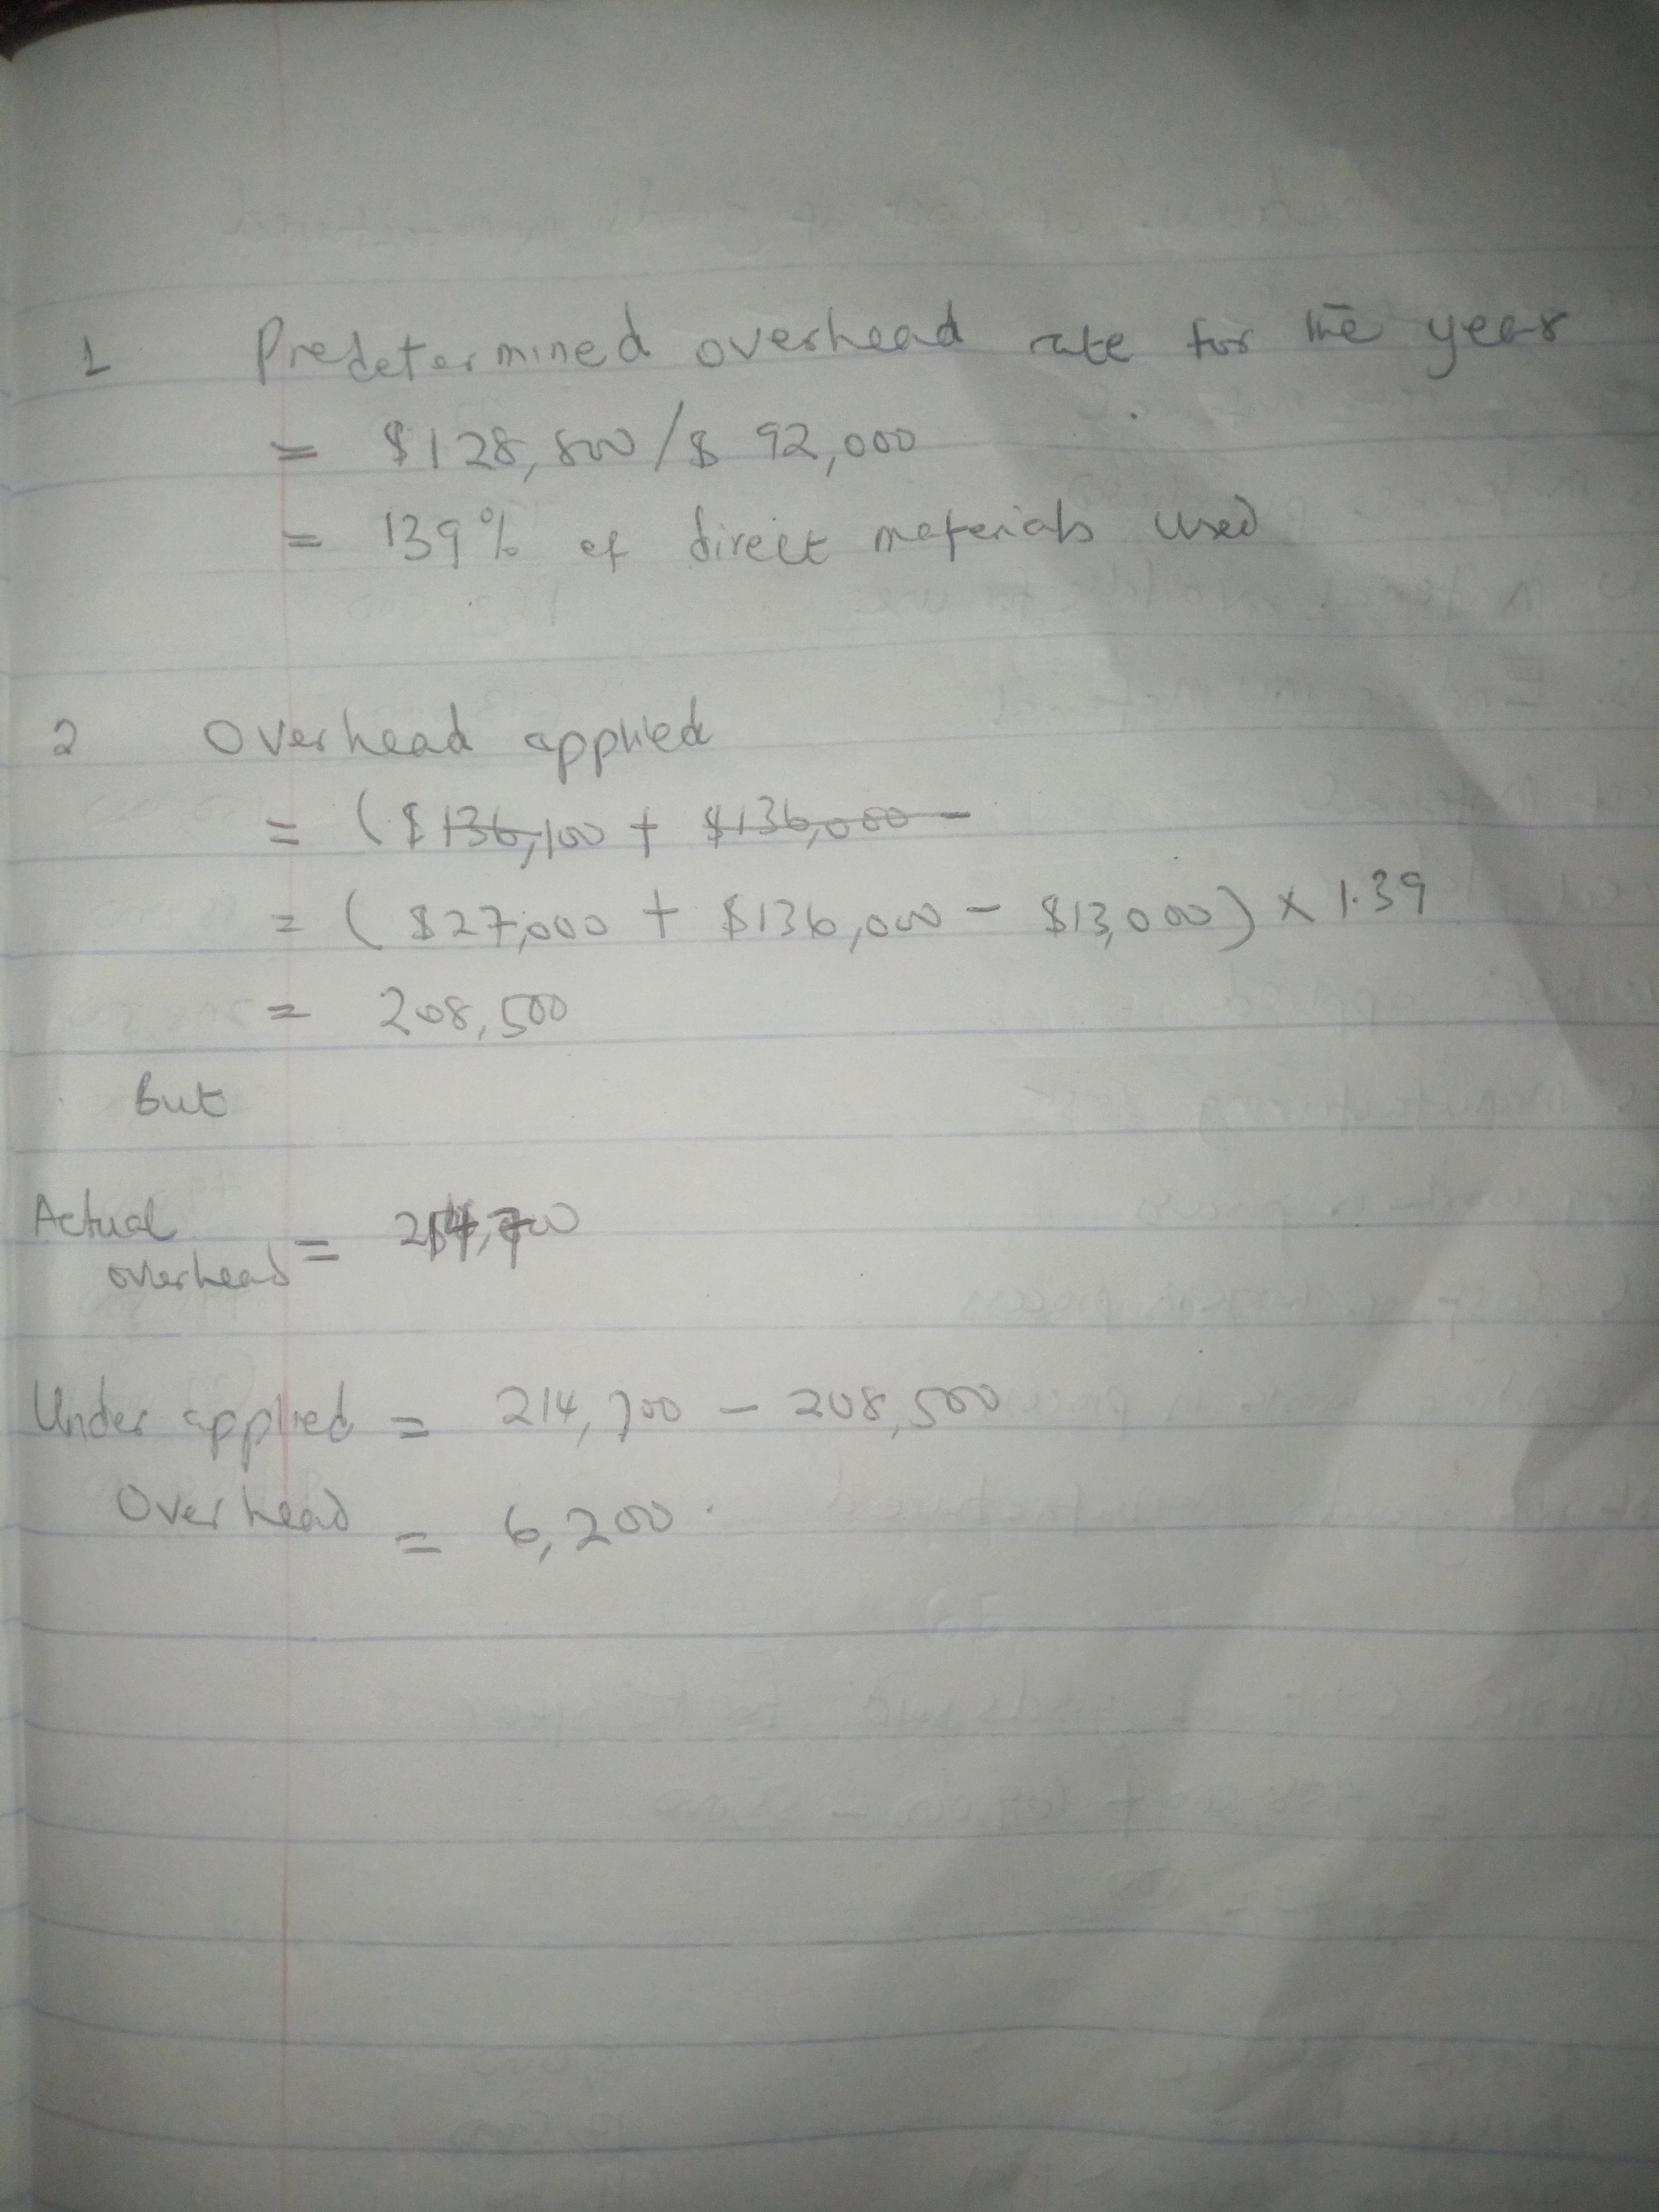 1 Predetermined overhead rate for the year
= $128,800/$ 92,000
= 139% of direct materials used
2 Overhead applied
= ($136,100 + $136,000 -
= ($27,000 + $136,000 - $13,000) x 1.39
= 208,500
But
Actual
overhead = 214,700
Under applied = 214,700 - 208,500
Overhead = 6,200.